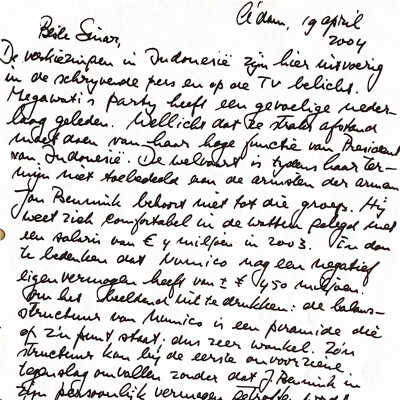 A'dam, 19 april
2004
Beste Sinar,
De verkiezingen in Indonesië zijn hier uitvoerig
in de schrijvende pers en op de TV belicht.
Megawati's party heeft een gevoelige neder-
laag geleden. Wellicht dat ze straks afstand
moet doen van haar hoge functie van President
van Indonesië. De welvaart is tijdens haar ter-
mijn niet toebedeeld aan de armsten der armen
Jan Bennink behoort niet tot die groep. Hij
weet zich comfortabel in de watten gelegd met
een salaris van € 4 miljoen in 2003. En dan
te bedenken dat Numico nog een negatief
eigen vermogen heeft van ± € 450 miljoen.
Om het beeldend uit te drukken: de balans-
structuur van Numico is een piramide die
op z'n punt staat; dus zeer wankel. Zo'n
structuur kan bij de eerste onvoorziene
tegenslag omvallen zonder dat J Bennink in
zijn persoonlijk vermogen getroffen wordt